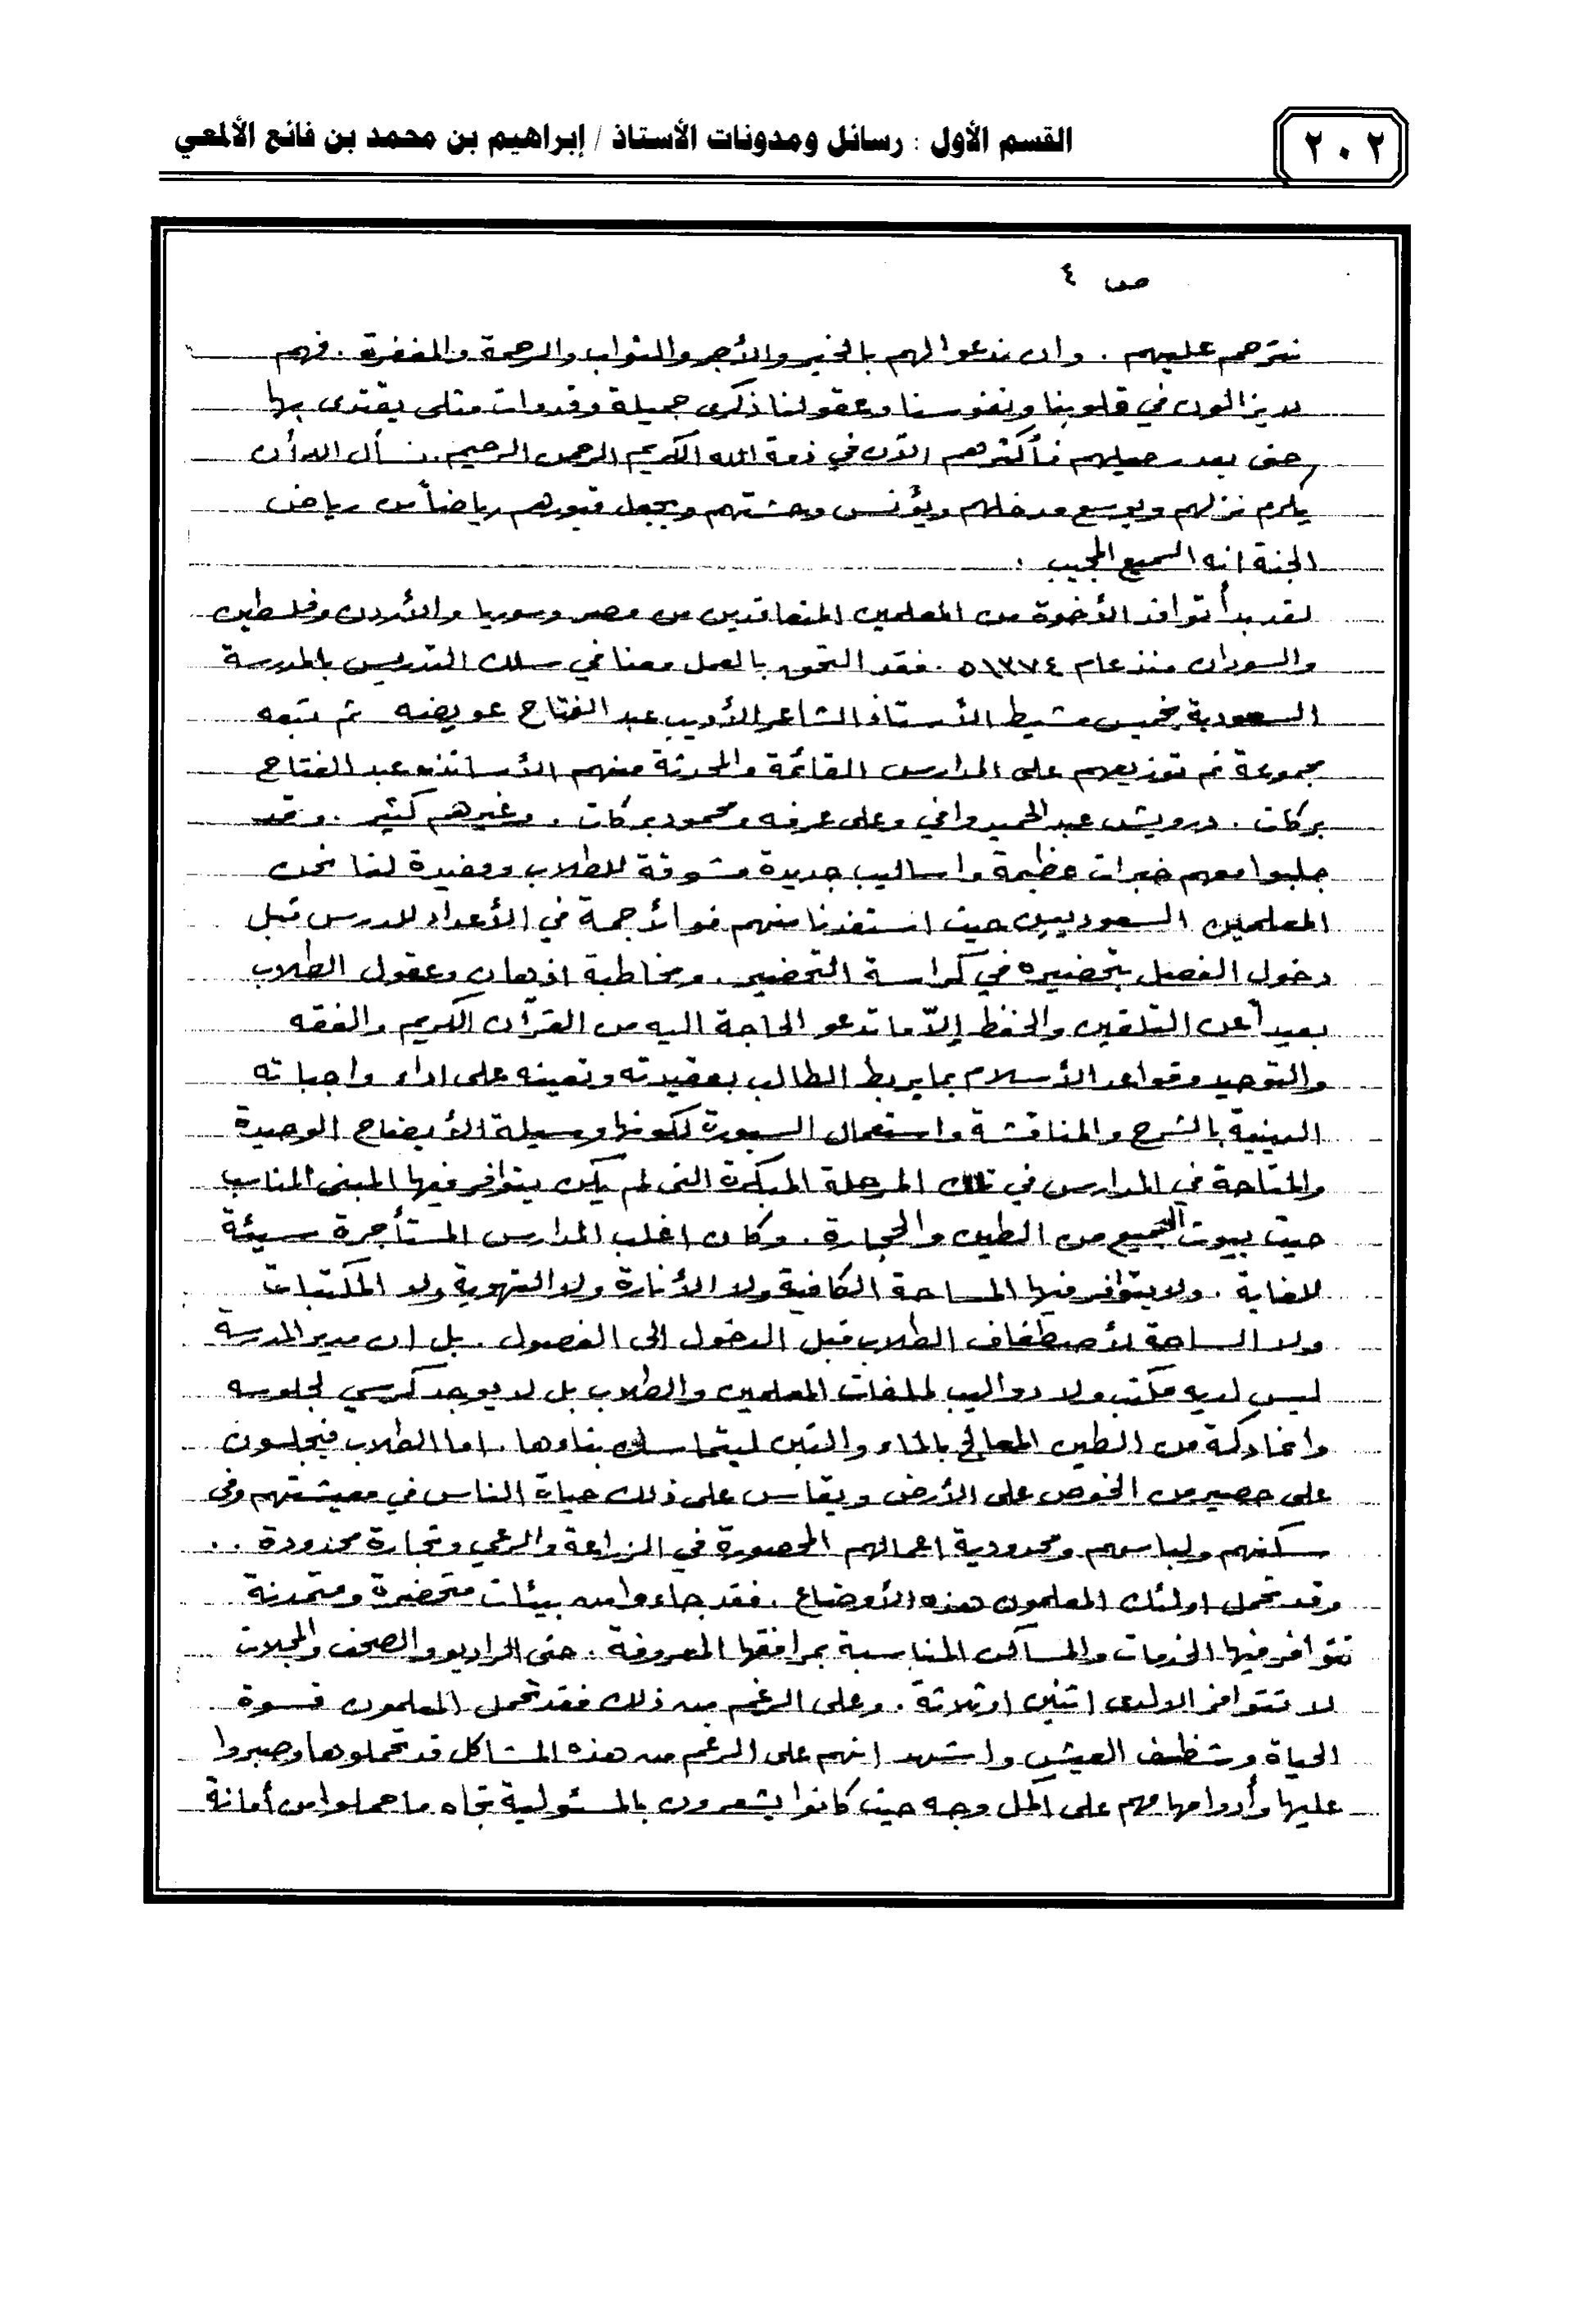 القسم الأول : رسائل ومدونات الأستاذ / إبراهيم بن محمد بن فائع الألمعي
٢٠٢
ص ٤
نترحم عليهم . وان ندعوا لهم بالخير والأجر والثواب والرحمة والمغفرة . فهم
لا يزالون في قلوبنا ونفوسنا وعقولنا ذكرى جميلة وقدوات مثلى يقتدى بها
حتى بعد رحيلهم فأكثرهم الآن في ذمة الله الكريم الرحمن الرحيم . نسأل الله أن
يكرم نزلهم ويوسع مدخلهم ويؤنس وحشتهم ويجعل قبورهم رياضاً من رياض
الجنة انه السميع المجيب .
لقد بدأ توافد الأخوة من المعلمين المتعاقدين من مصر وسوريا والأردن وفلسطين
والسودان منذ عام ١٣٧٤ه . فقد التحق بالعمل معنا في سلك التدريس بالمدرسة
السعودية بخميس مشيط الأستاذ الشاعر الأديب عبد الفتاح عويضه ثم تبعه
مجموعة تم توزيعهم على المدارس القائمة والمحدثة منهم الأساتذه عبد الفتاح
بركات . درويش عبد الحميد وافي وعلى عرفه ومحمود بركات . وغيرهم كثير . وقد
جلبوا معهم خبرات عظيمة واساليب جديدة مشوقة للطلاب ومفيدة لنا نحن
المعلمين السعوديين حيث استفدنا منهم فوائد جمة في الأعداد للدرس قبل
دخول الفصل بتحضيره في كراسة التحضير . ومخاطبة اذهان وعقول الطلاب
بعيداً عن التلقين والحفظ إلاّ ما تدعو الحاجة اليه من القرآن الكريم والفقه
والتوحيد وقواعد الأسلام بما يربط الطالب بعقيدته وتعينه على اداء واجباته
الدينية بالشرح والمناقشة واستعمال السبورة لكونها وسيلة الأيضاح الوحيدة
والمتاحة في المدارس في تلك المرحلة المبكرة التى لم يكن يتوافر فيها المبنى المناسب
حيث بيوت الجميع من الطين والحجارة . وكان اغلب المدارس المستأجرة سيئة
للغاية . ولا يتوافر فيها المساحة الكافية ولا الأنارة ولا التهوية ولا المكتبات
ولا الساحة لأصطفاف الطلاب قبل الدخول الى الفصول . بل ان مدير المدرسة
ليس لديه مكتب ولا دواليب لملفات المعلمين والطلاب بل لا يوجد كرسي لجلوسه
وانما دكة من الطين المعالج بالماء والتبن ليتماسك بناوها . اما الطلاب فيجلسون
على حصير من الخوص على الأرض ويقاس على ذلك حياة الناس في معيشتهم وفى
سكنهم ولباسهم ومحدودية اعمالهم المحصورة في الزراعة والرعي وتجارة محدودة . .
وقد تحمل اولئك المعلمون هذه الأوضاع . فقد جاءوا من بيئات متحضرة ومتمدنة
تتوافر فيها الخدمات والمساكن المناسبة بمرافقها المعروفة . حتى الراديو والصحف والمجلات
لا تتوافر الا لدى اثنين او ثلاثة . وعلى الرغم من ذلك فقد تحمل المعلمون قسوة
الحياة وشظف العيش واشهد انهم على الرغم من هذه المشاكل قد تحملوها وصبروا
عليها وأدوا مهامهم على اكمل وجه حيث كانوا يشعرون بالمسئولية تجاه ما حملوا من أمانة